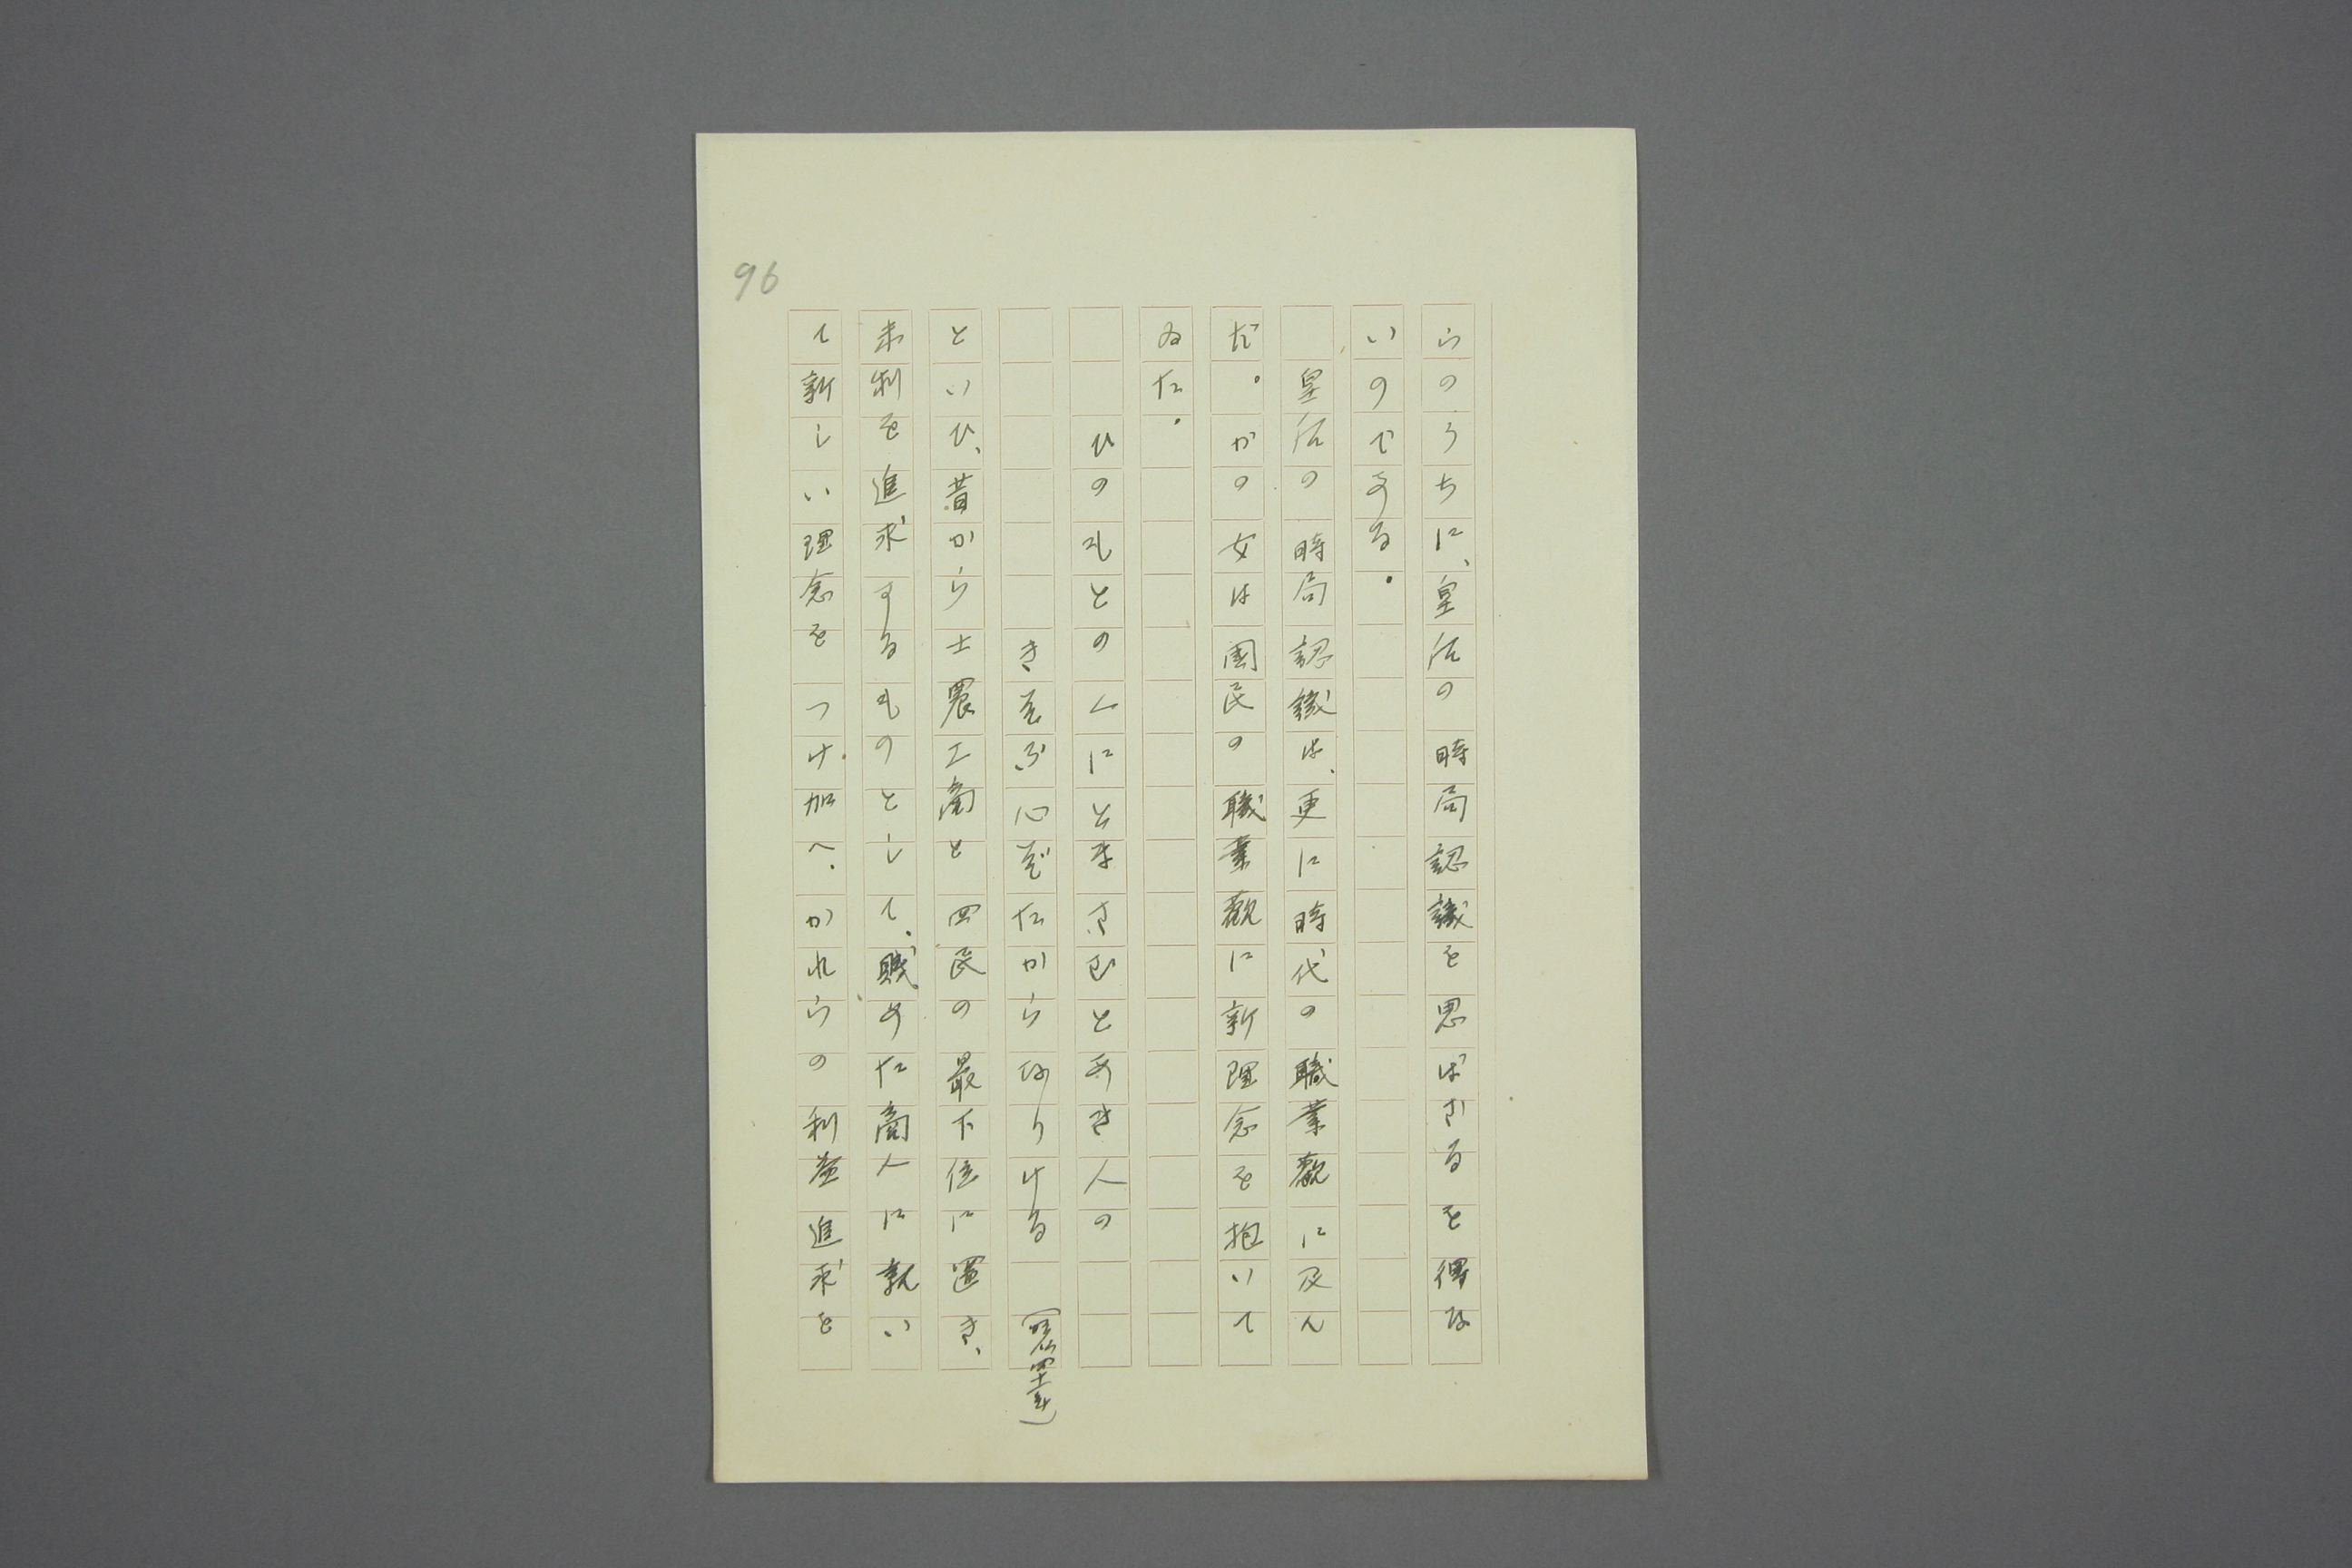 96
らのうちに、皇后の時局認識を思はざるを得な
いのである。
皇后の時局認識は、更に時代の職業觀に及ん
だ。かの女は國民の職業觀に新理念を抱いて
ゐた。
ひのもとのくにとまさむとあき人の
きそふ心ぞたからなりける
といひ、昔から士農工商と四民の最下位に置き、
末利を追求するものとして、賤めた商人に就い
て新しい理念をつけ加へ、かれらの利益追求を